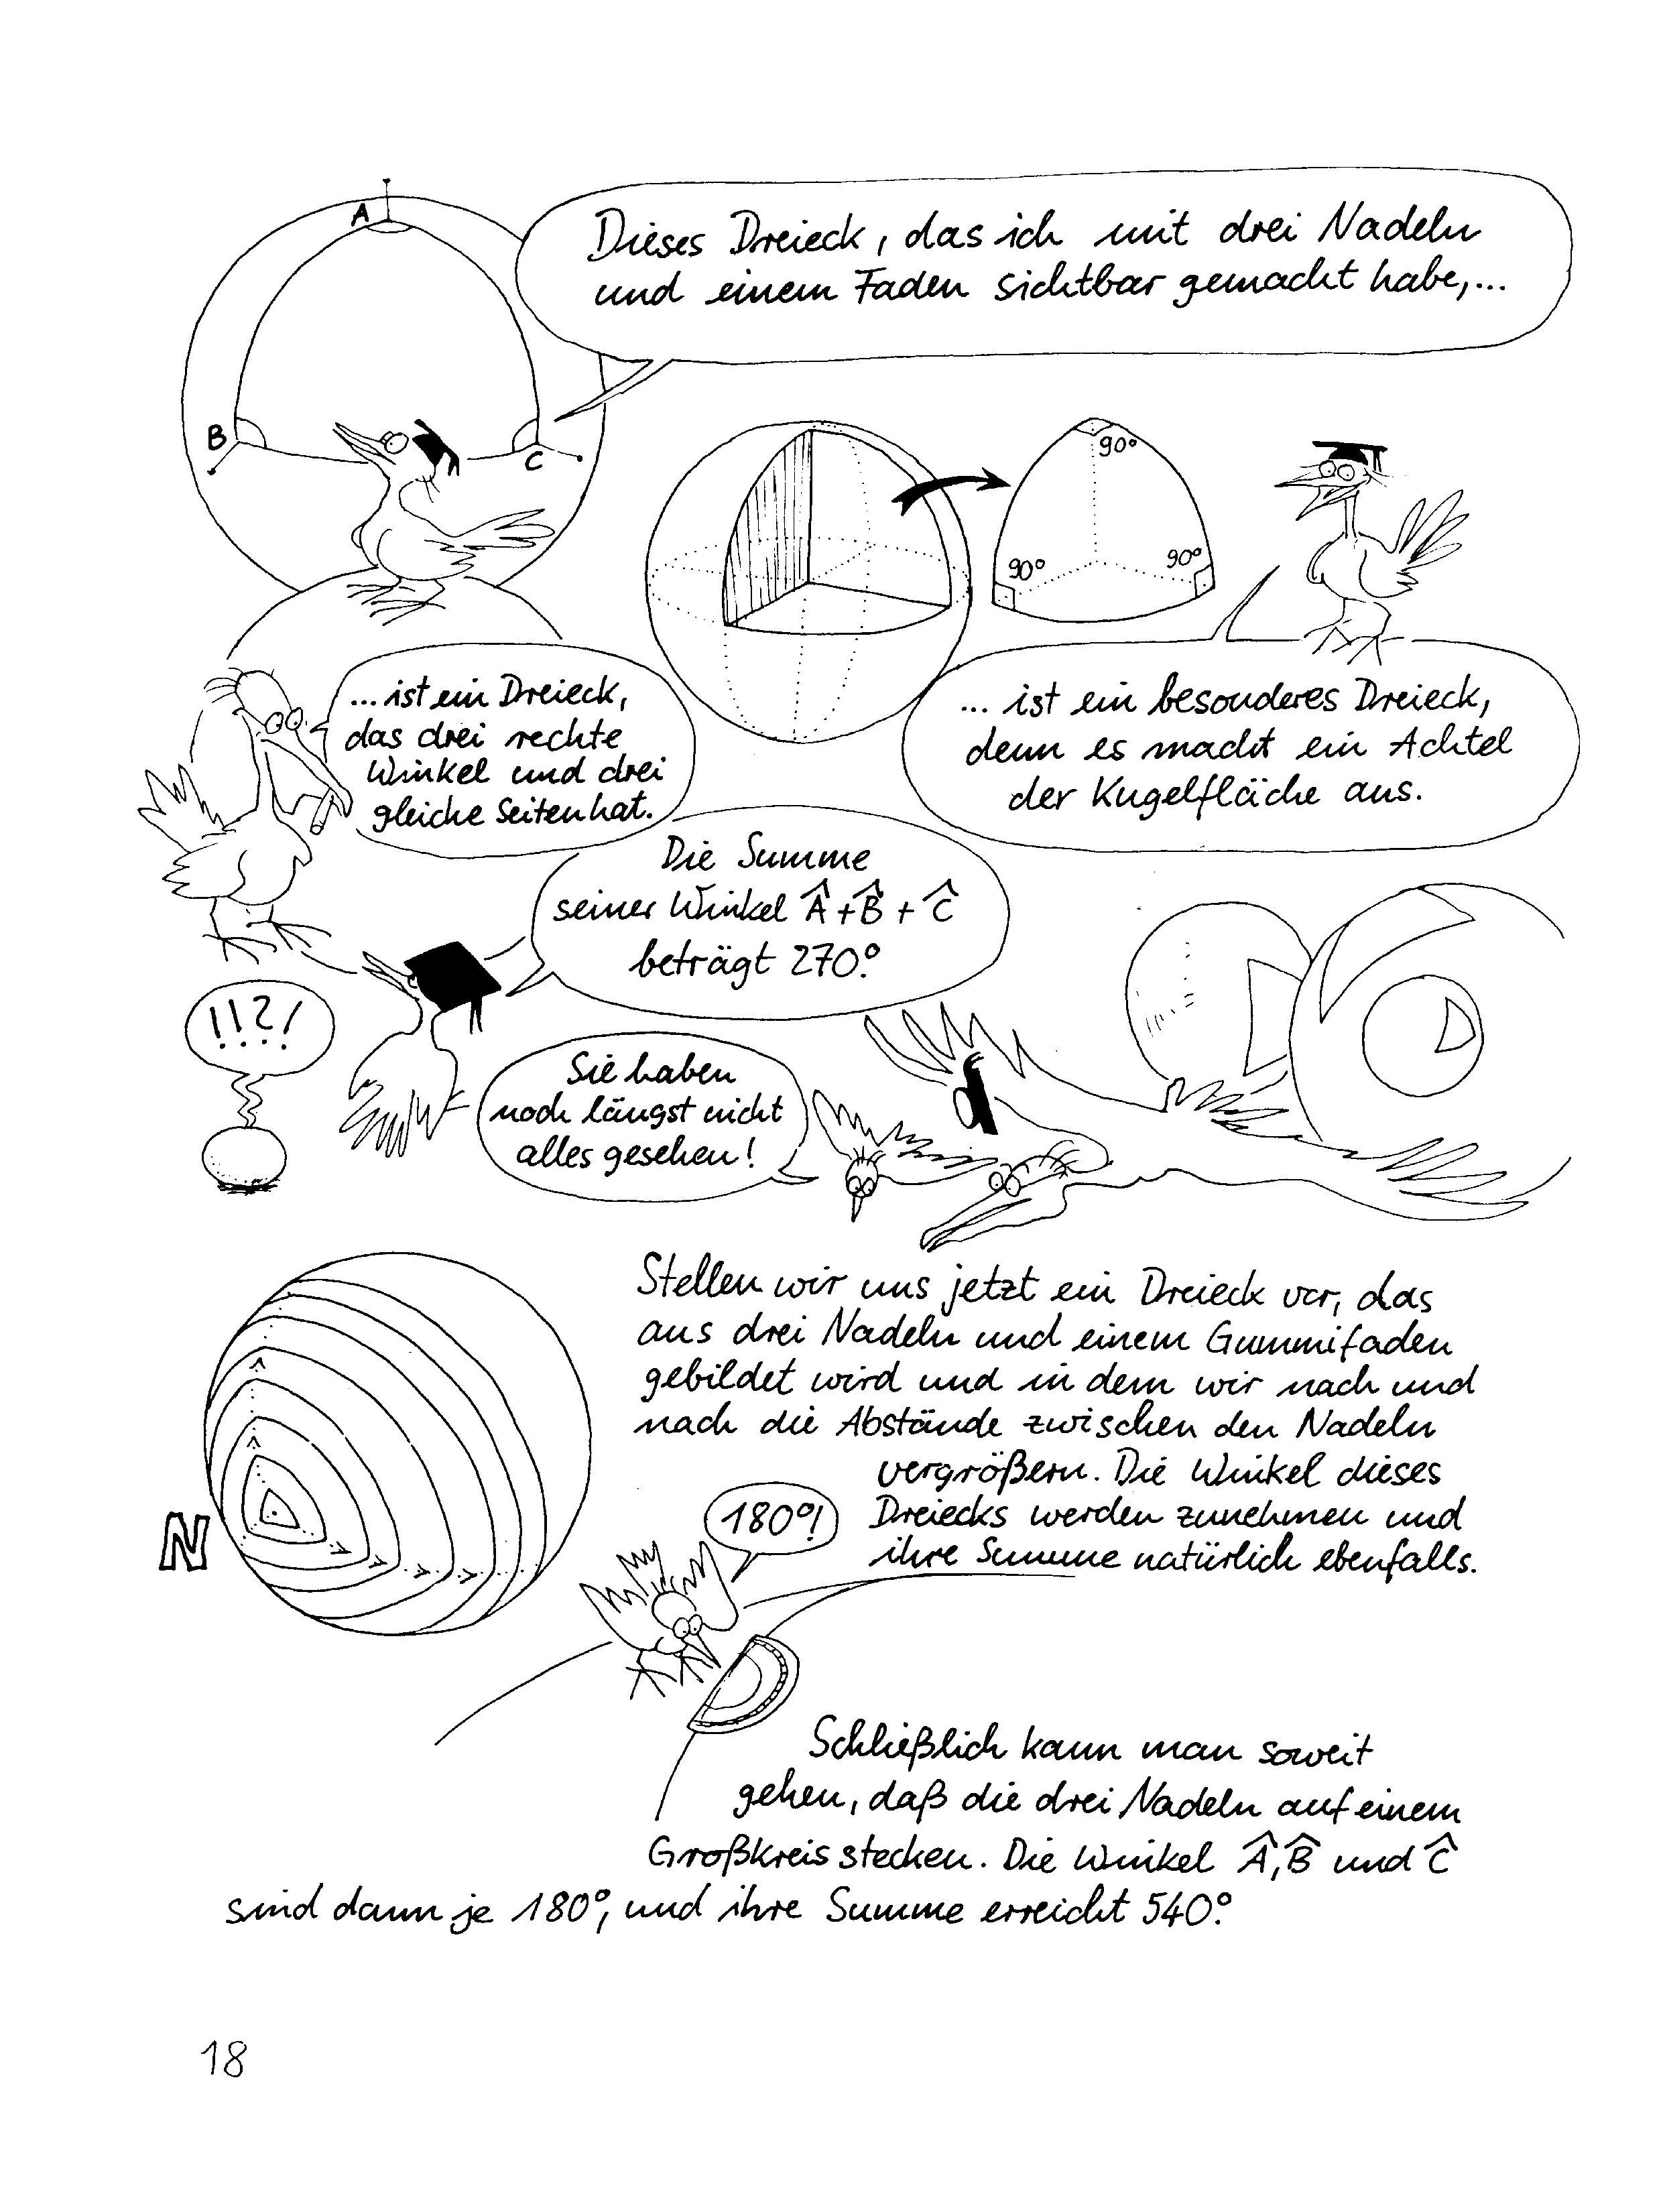 A
B
C
Dieses Dreieck, das ich mit drei Nadeln
und einem Faden sichtbar gemacht habe,...
90°
90°
90°
... ist ein Dreieck,
das drei rechte
Winkel und drei
gleiche Seiten hat.
... ist ein besonderes Dreieck,
denn es macht ein Achtel
der Kugelfläche aus.
Die Summe
seiner Winkel Â + B̂ + Ĉ
beträgt 270°.
!!?!
Sie haben
noch längst nicht
alles gesehen!
Stellen wir uns jetzt ein Dreieck vor, das
aus drei Nadeln und einem Gummifaden
gebildet wird und in dem wir nach und
nach die Abstände zwischen den Nadeln
vergrößern. Die Winkel dieses
Dreiecks werden zunehmen und
ihre Summe natürlich ebenfalls.
N
180°!
Schließlich kann man soweit
gehen, daß die drei Nadeln auf einem
Großkreis stecken. Die Winkel Â, B̂ und Ĉ
sind dann je 180°, und ihre Summe erreicht 540°.
18